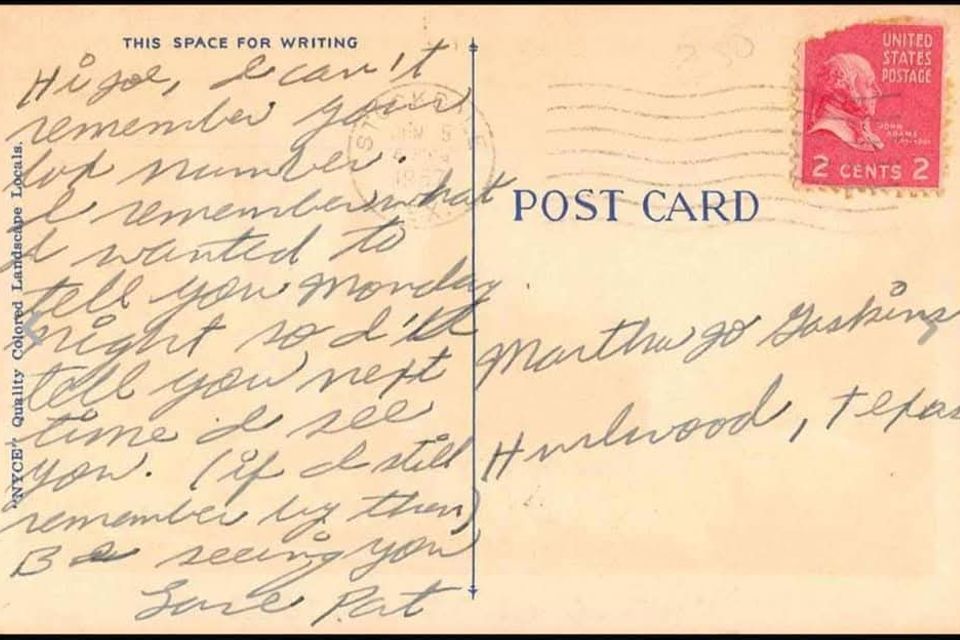 THIS SPACE FOR WRITING
Hi Joe, I can't
remember your
box number.
I remember what
I wanted to
tell you Monday
night so I'll
tell you next
time I see
you. (if I still
remember by then)
B seeing you
Love Pat
"NYCE" Quality Colored Landscape Locals.
UNITED
STATES
POSTAGE
JOHN
ADAMS
2 CENTS 2
POST CARD
Martha Jo Gaskins
Hurlwood, Texas